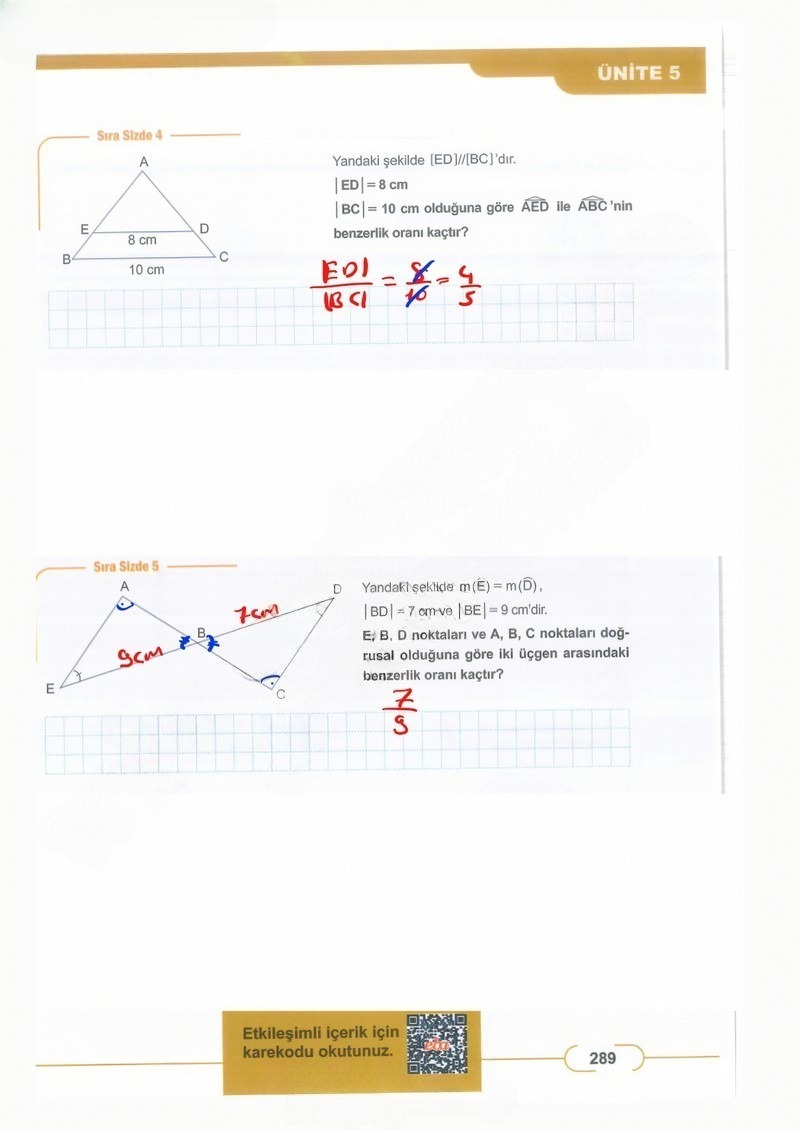 ÜNİTE 5
Sıra Sizde 4
A
E
D
8 cm
B
C
10 cm
Yandaki şekilde [ED]//[BC]'dır.
|ED| = 8 cm
|BC| = 10 cm olduğuna göre AED ile ABC'nin
benzerlik oranı kaçtır?
|ED|/|BC| = 8/10 = 4/5
Sıra Sizde 5
A
D
B
E
C
7cm
9cm
Yandaki şekilde m(E) = m(D),
|BD| = 7 cm ve |BE| = 9 cm'dir.
E, B, D noktaları ve A, B, C noktaları doğ-
rusal olduğuna göre iki üçgen arasındaki
benzerlik oranı kaçtır?
7/9
Etkileşimli içerik için
karekodu okutunuz.
eba
289